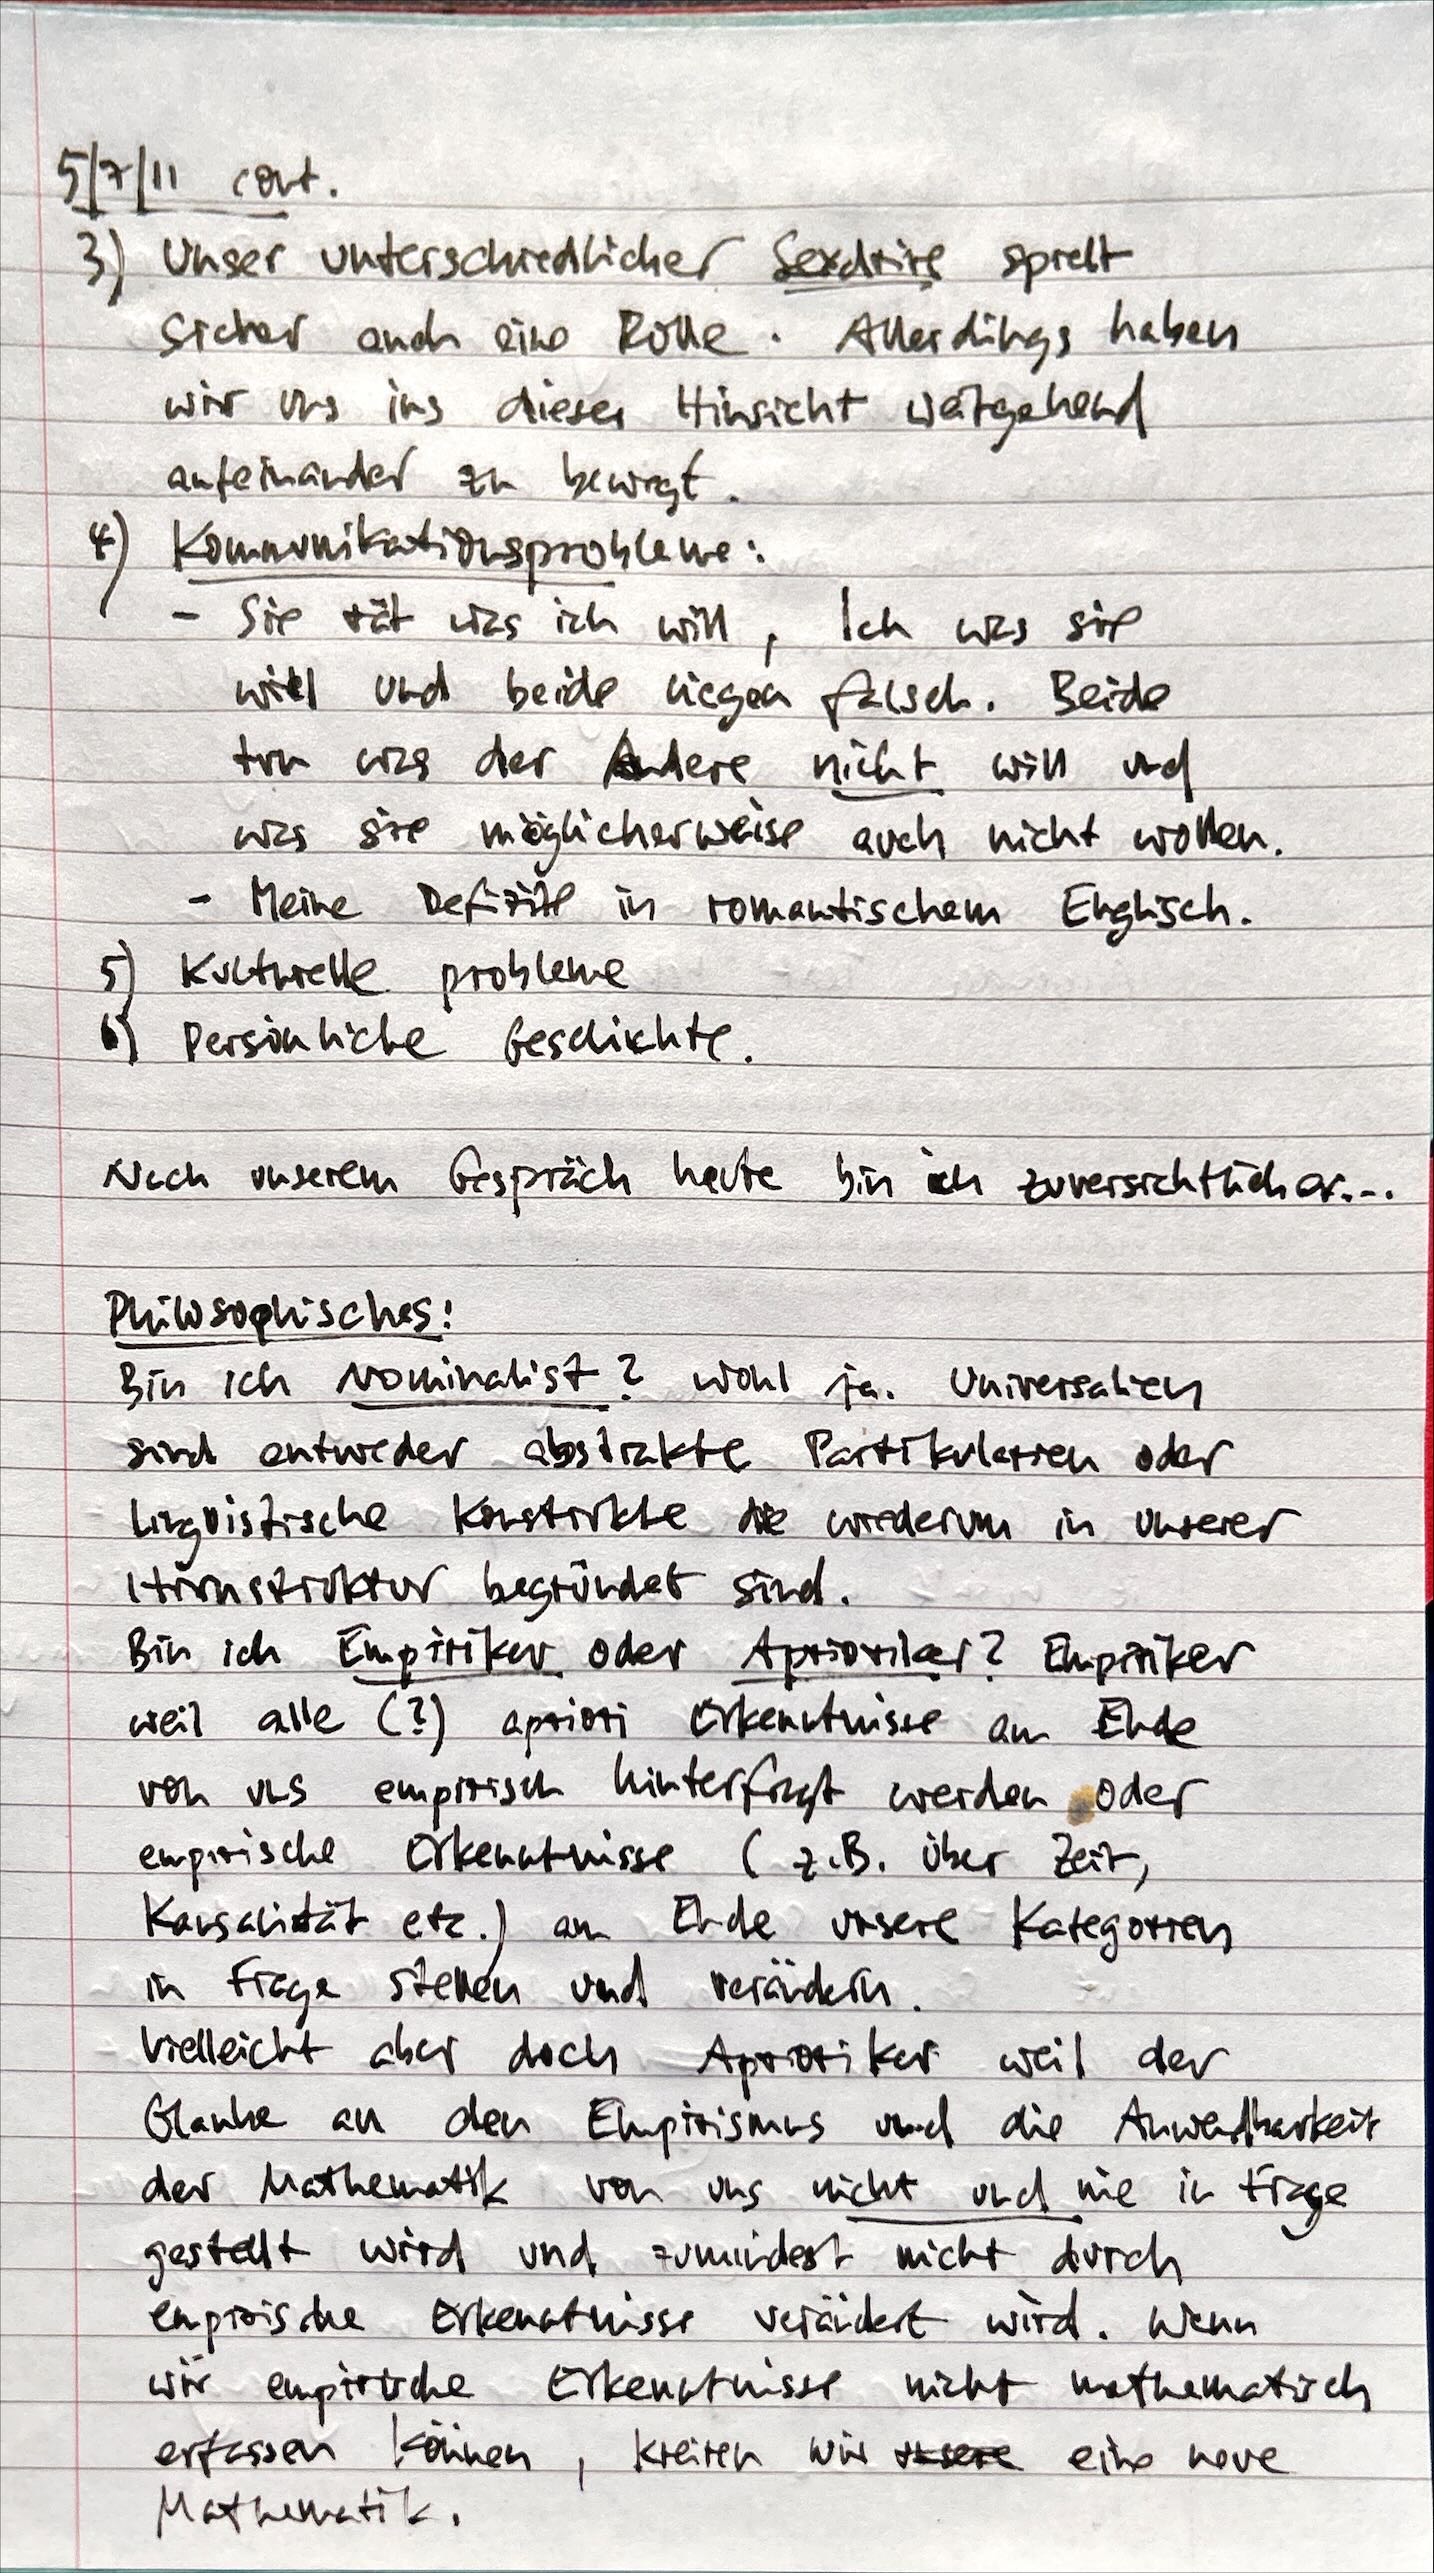 5/7/11 cont.
3) Unser unterschiedlicher Sexdrive spielt
sicher auch eine Rolle. Allerdings haben
wir uns ins dieser Hinsicht weitgehend
aufeinander zu bewegt.
4) Kommunikationsprobleme:
- Sie rät was ich will, Ich was sie
will und beide liegen falsch. Beide
tun was der Andere nicht will und
was sie möglicherweise auch nicht wollen.
- Meine Defizite in romantischem Englisch.
5) Kulturelle probleme
6) Persönliche Geschichte.
Nach unserem Gespräch heute bin ich zuversichtlicher...
Philosophisches:
Bin ich Nominalist? Wohl ja. Universalien
sind entweder abstrakte Partikularien oder
linguistische Konstrukte die wiederum in unserer
Hirnstruktur begründet sind.
Bin ich Empiriker oder Aprioriker? Empiriker
weil alle (?) apriori Erkenntnisse am Ende
von uns empirisch hinterfragt werden oder
empirische Erkenntnisse (z.B. über Zeit,
Kausalität etc.) am Ende unsere Kategorien
in Frage stellen und verändern.
Vielleicht aber doch Aprioriker weil der
Glaube an den Empirismus und die Anwendbarkeit
der Mathematik von uns nicht und nie in Frage
gestellt wird und zumindest nicht durch
empirische Erkenntnisse verändert wird. Wenn
wir empirische Erkenntnisse nicht mathematisch
erfassen können, kreiren wir unsere eine neue
Mathematik.